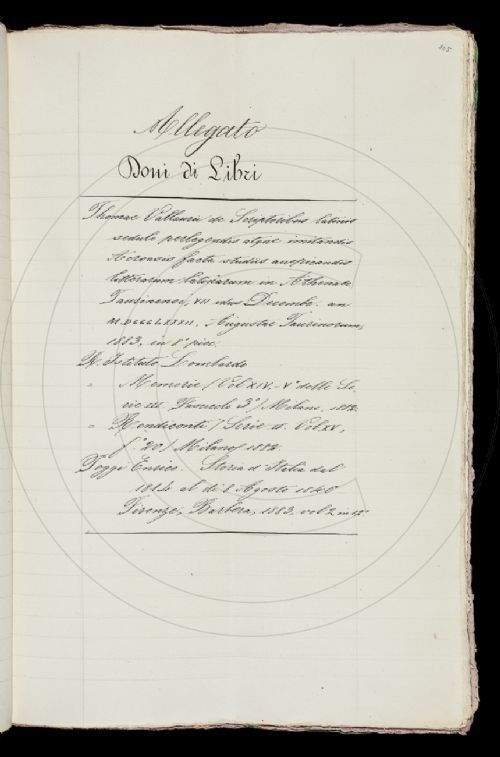 105
Allegato
Doni di Libri
Thomae Vallaurii de Scriptoribus latinis
sedulo perlegendis atque imitandis
Acroasis facta studiis auspicandis
litterarum latinarum in Athenaeo
Taurinensi, VII idus Decemb. an.
M.DCCCLXXXII. Augustae Taurinorum,
1883, in 8° picc.
R. Istituto Lombardo
" Memorie (Vol XIV.- V° della Se-
rie III. Fascicolo 3°) Milano, 1882.
" Rendiconti (Serie II. Vol XV,
f.° 20) Milano 1882.
Poggi Enrico. Storia d'Italia dal
1814 al dì 8 Agosto 1846
Firenze, Barbèra, 1883. vol 2 in 12°